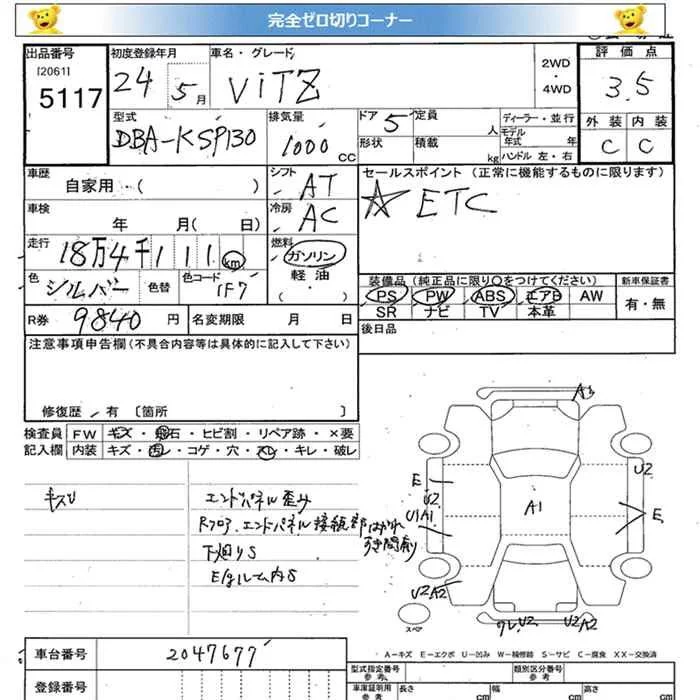 完全ゼロ切りコーナー
出品番号 初度登録年月 車名・グレード 2WD・4WD 評価点
[2061]
5117 24 5月 ViTZ 3.5
型式 排気量 ドア 定員 ディーラー・並行 外装 内装
DBA-KSP130 1000 CC 5 人 モデル年式 年 C C
形状 積載 kg ハンドル 左・右
車歴 シフト セールスポイント (正常に機能するものに限ります)
自家用 ( ) AT ☆ ETC
車検 冷房
年 月( 日) AC
走行 燃料
18万4千111 km ガソリン
軽油
( ・ )
色 シルバー 色替 色コード 1F7
装備品 (純正品に限り○をつけてください) 新車保証書
PS PW ABS エアB AW 有・無
SR ナビ TV 本革
R券 9840 円 名変期限 月 日
後日品
注意事項申告欄(不具合内容等は具体的に記入して下さい)
修復歴 有 [箇所 ]
検査員 FW キズ・飛石・ヒビ割・リペア跡・×要
記入欄 内装 キズ・汚レ・コゲ・穴・スレ・キレ・破レ
キズU
エンドパネル歪み
Rフロア、エンドパネル接続部はがれ
すき間有り
下廻りS
E/gルーム内S
A3
E
U2
U1A1
A1
U2
E
U2A2
スペア
ワレU2
U2A2
A-キズ E-エクボ U-凹み W-補修跡 S-サビ C-腐食 XX-交換済
車台番号 2047677
登録番号
型式指定番号 類別区分番号
参考
車庫証明用 長さ cm 幅 cm 高さ cm
参考